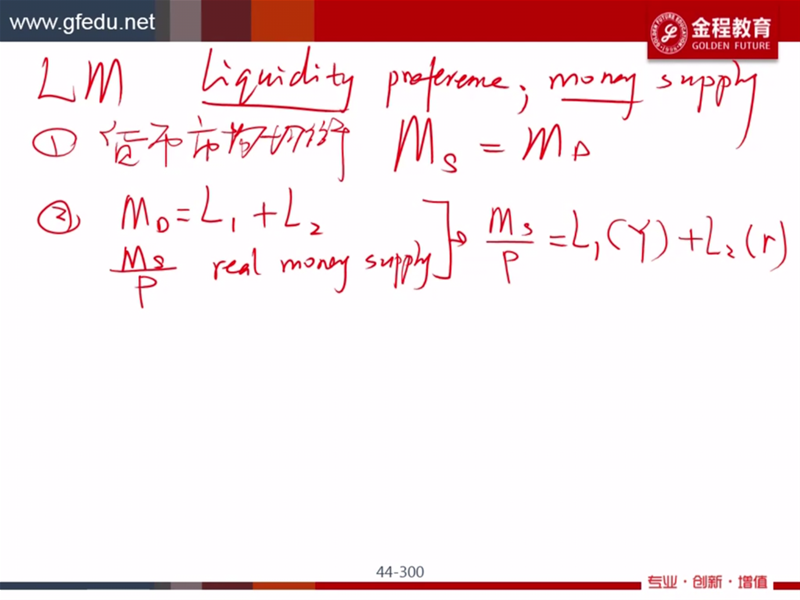 www.gfedu.net
金程教育
GOLDEN FUTURE
LM liquidity preference; money supply
① 货币市场均衡 Ms = MD
② MD = L1 + L2
Ms/P real money supply
Ms/P = L1(Y) + L2(r)
44-300
专业·创新·增值